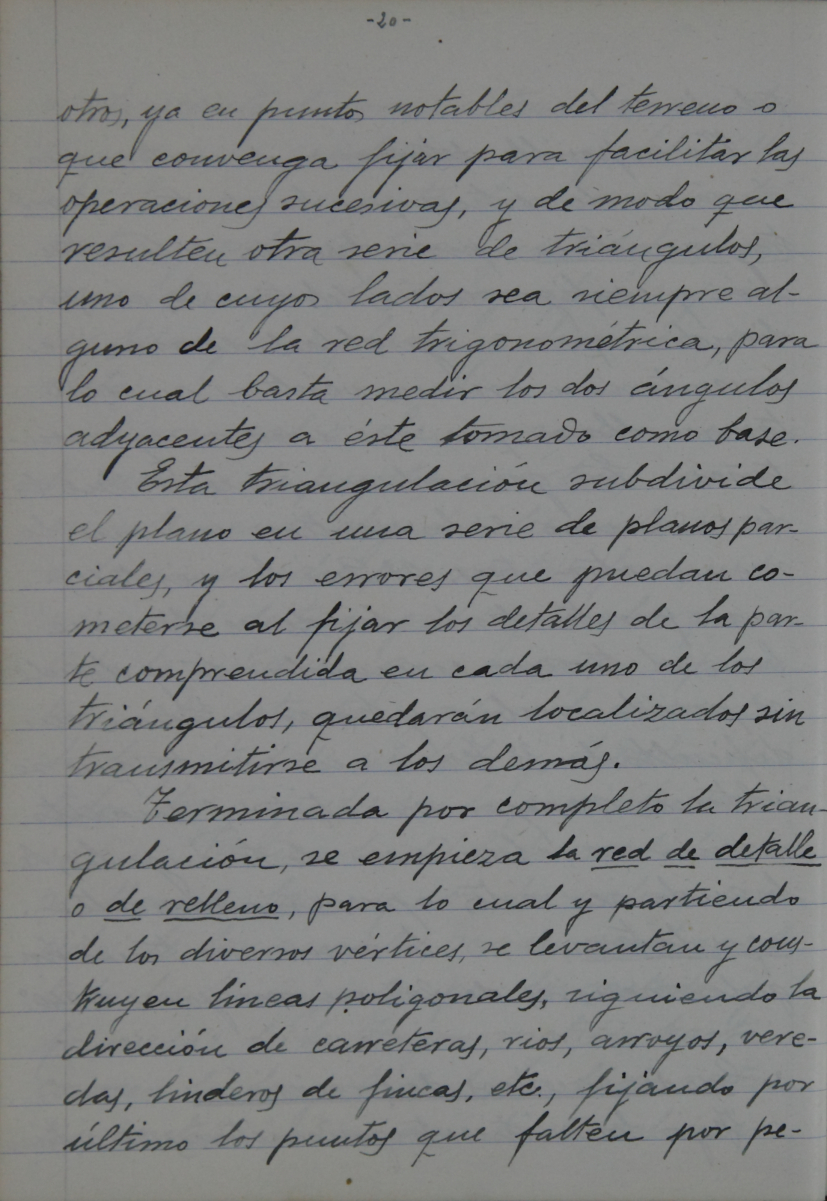 -20-
otros, ya en puntos notables del terreno o
que convenga fijar para facilitar las
operaciones sucesivas, y de modo que
resulten otra serie de triángulos,
uno de cuyos lados sea siempre al-
guno de la red trigonométrica, para
lo cual basta medir los dos ángulos
adyacentes a éste tomado como base.
Esta triangulación subdivide
el plano en una serie de planos par-
ciales, y los errores que puedan co-
meterse al fijar los detalles de la par-
te comprendida en cada uno de los
triángulos, quedarán localizados sin
transmitirse a los demás.
Terminada por completo la trian-
gulación, se empieza la red de detalle
o de relleno, para lo cual y partiendo
de los diversos vértices, se levantan y cons-
truyen líneas poligonales, siguiendo la
dirección de carreteras, rios, arroyos, vere-
das, linderos de fincas, etc., fijando por
último los puntos que falten por pe-